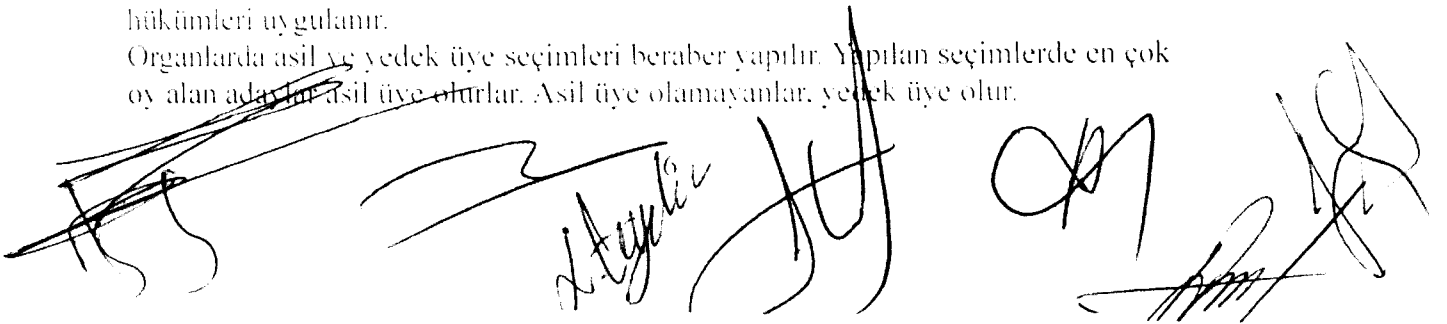 hükümleri uygulanır.
Organlarda asil ve yedek üye seçimleri beraber yapılır. Yapılan seçimlerde en çok
oy alan adaylar asil üye olurlar. Asil üye olamayanlar, yedek üye olur.